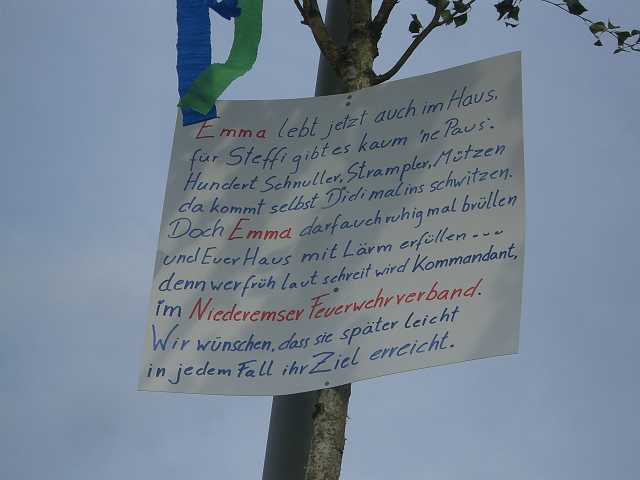 Emma lebt jetzt auch im Haus,
für Steffi gibt es kaum 'ne Paus'.
Hundert Schnuller, Strampler, Mützen
da kommt selbst Didi mal ins schwitzen.
Doch Emma darf auch ruhig mal brüllen
und Euer Haus mit Lärm erfüllen ---
denn wer früh laut schreit wird Kommandant,
im Niederemser Feuerwehrverband.
Wir wünschen, dass sie später leicht
in jedem Fall ihr Ziel erreicht.